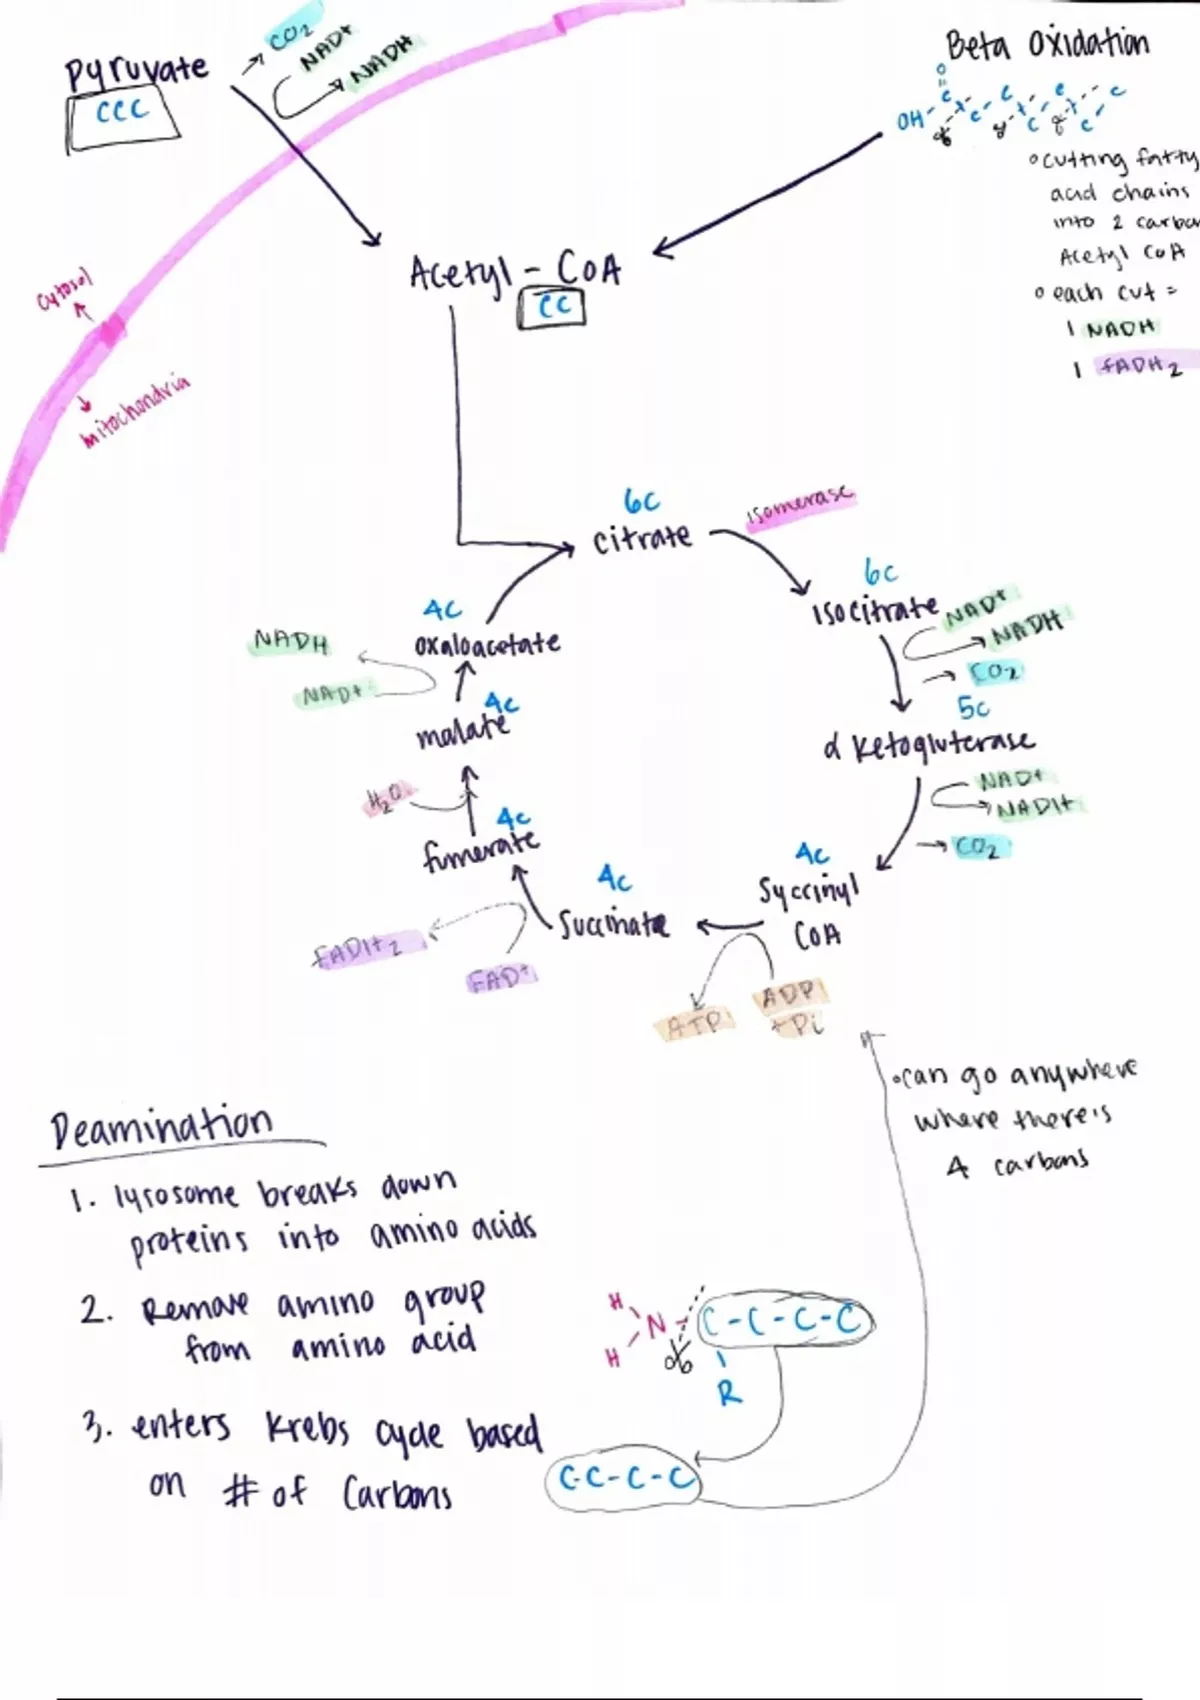 Pyruvate
CCC
→ CO2
NAD+
NADH
Beta Oxidation
O
OH
C C C C C C C
° cutting fatty
acid chains
into 2 carbon
Acetyl CoA
° each cut =
1 NADH
1 FADH2
Acetyl - CoA
CC
cytosol
mitochondria
6C
citrate
isomerase
6C
Isocitrate
NAD+
NADH
→ CO2
5C
α ketogluterase
NAD+
NADH
→ CO2
4C
Succinyl
CoA
ADP
+ Pi
ATP
4C
Succinate
FAD+
FADH2
4C
fumerate
H2O
4C
malate
NAD+
NADH
4C
oxaloacetate
• can go anywhere
where there's
4 carbons
Deamination
1. lysosome breaks down
proteins into amino acids
2. Remove amino group
from amino acid
H
N - C - C - C - C
H
R
3. enters Krebs cycle based
on # of Carbons
C-C-C-C